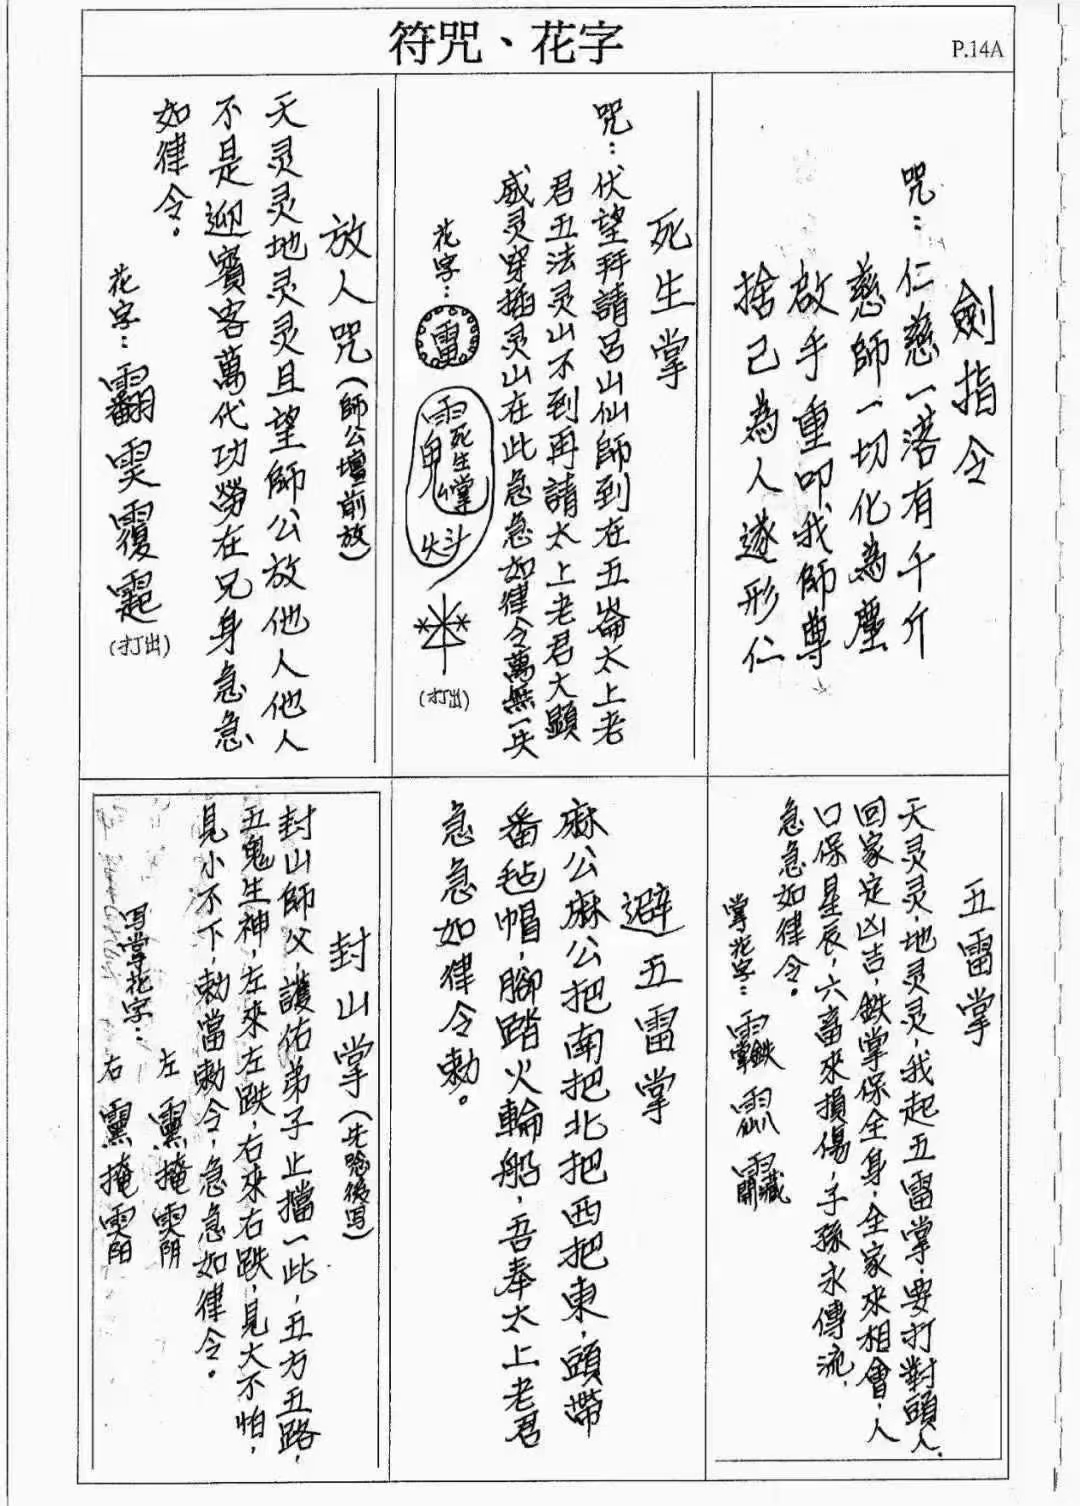 符咒、花字
P.14A
劍指令
咒：仁慈一落有千斤
慈師一切化為塵
啟手重叩我師尊
捨己為人遂形仁
死生掌
咒：伏望拜請呂山仙師到在五崙太上老
君五法灵山不到再請太上老君大顯
威灵穿插灵山在此急急如律令萬無一失
花字：
雷
死生掌
鬼
(打出)
放人咒(師公壇前放)
天灵灵地灵灵且望師公放他人他人
不是迎賓客萬代功勞在兄身急急
如律令。
花字：
(打出)
五雷掌
天灵灵，地灵灵，我起五雷掌，要打對頭人，
回家定凶吉，鉄掌保全身，全家來相會，人
口保星辰，六畜來損傷，子孫永傳流，
急急如律令。
掌花字：
避五雷掌
麻公麻公把南把北把西把東，頭帶
番毡帽，腳踏火輪船，吾奉太上老君
急急如律令勅。
封山掌(先唸後写)
封山師父，護佑弟子止擋一此，五方五路，
五鬼生神，左來左跌，右來右跌，見大不怕，
見小不下，勅當勅令，急急如律令。
写掌花字：
左
右